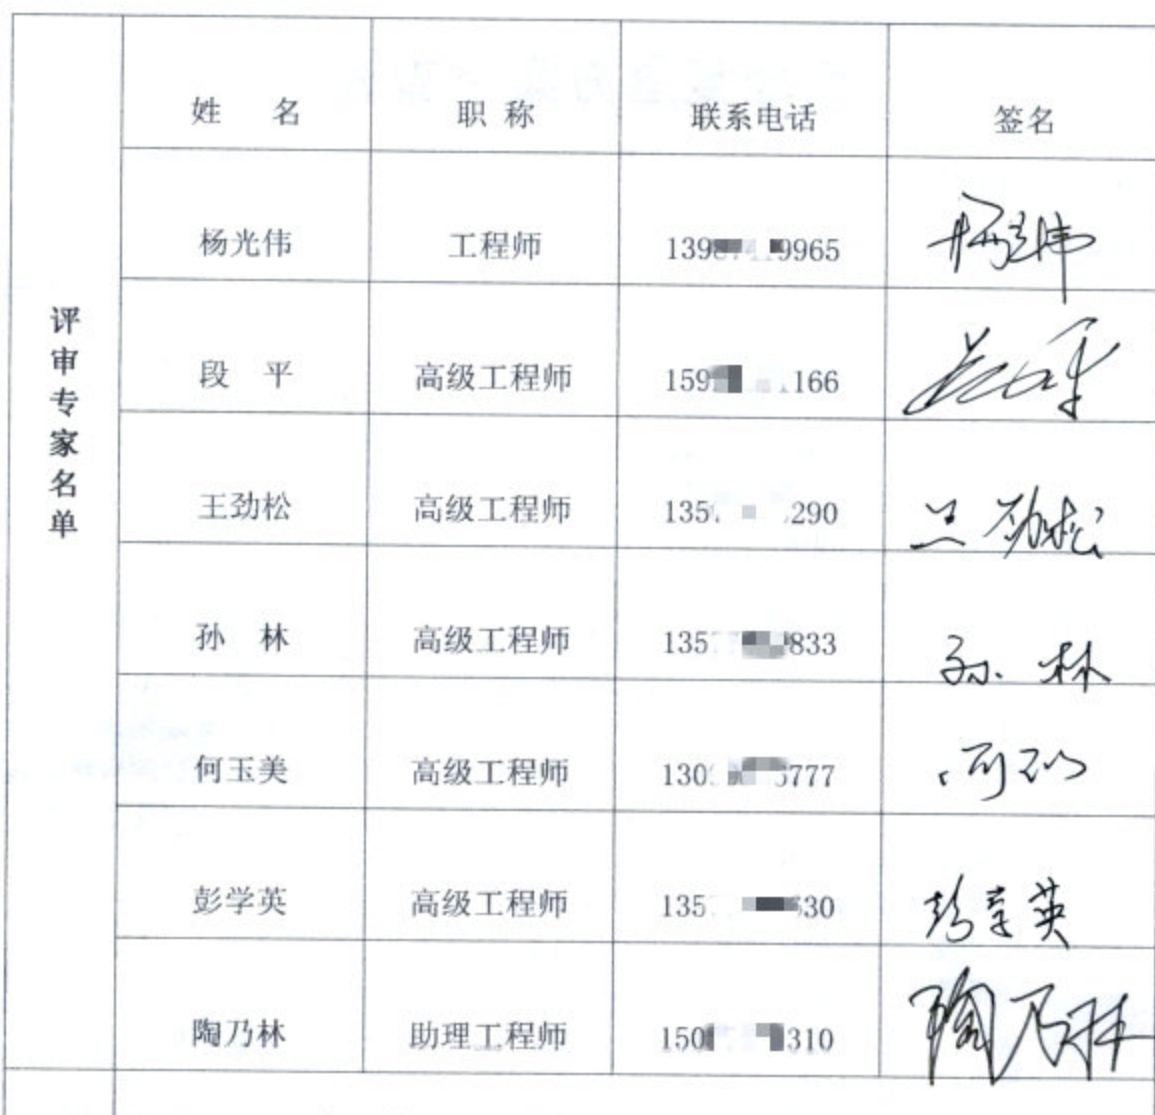 评审专家名单
姓 名 职 称 联系电话 签名
杨光伟 工程师 139 9965 杨光伟
段 平 高级工程师 159 166 段平
王劲松 高级工程师 135 290 王劲松
孙 林 高级工程师 135 833 孙林
何玉美 高级工程师 130 777
彭学英 高级工程师 135 30 彭学英
陶乃林 助理工程师 150 310 陶乃林